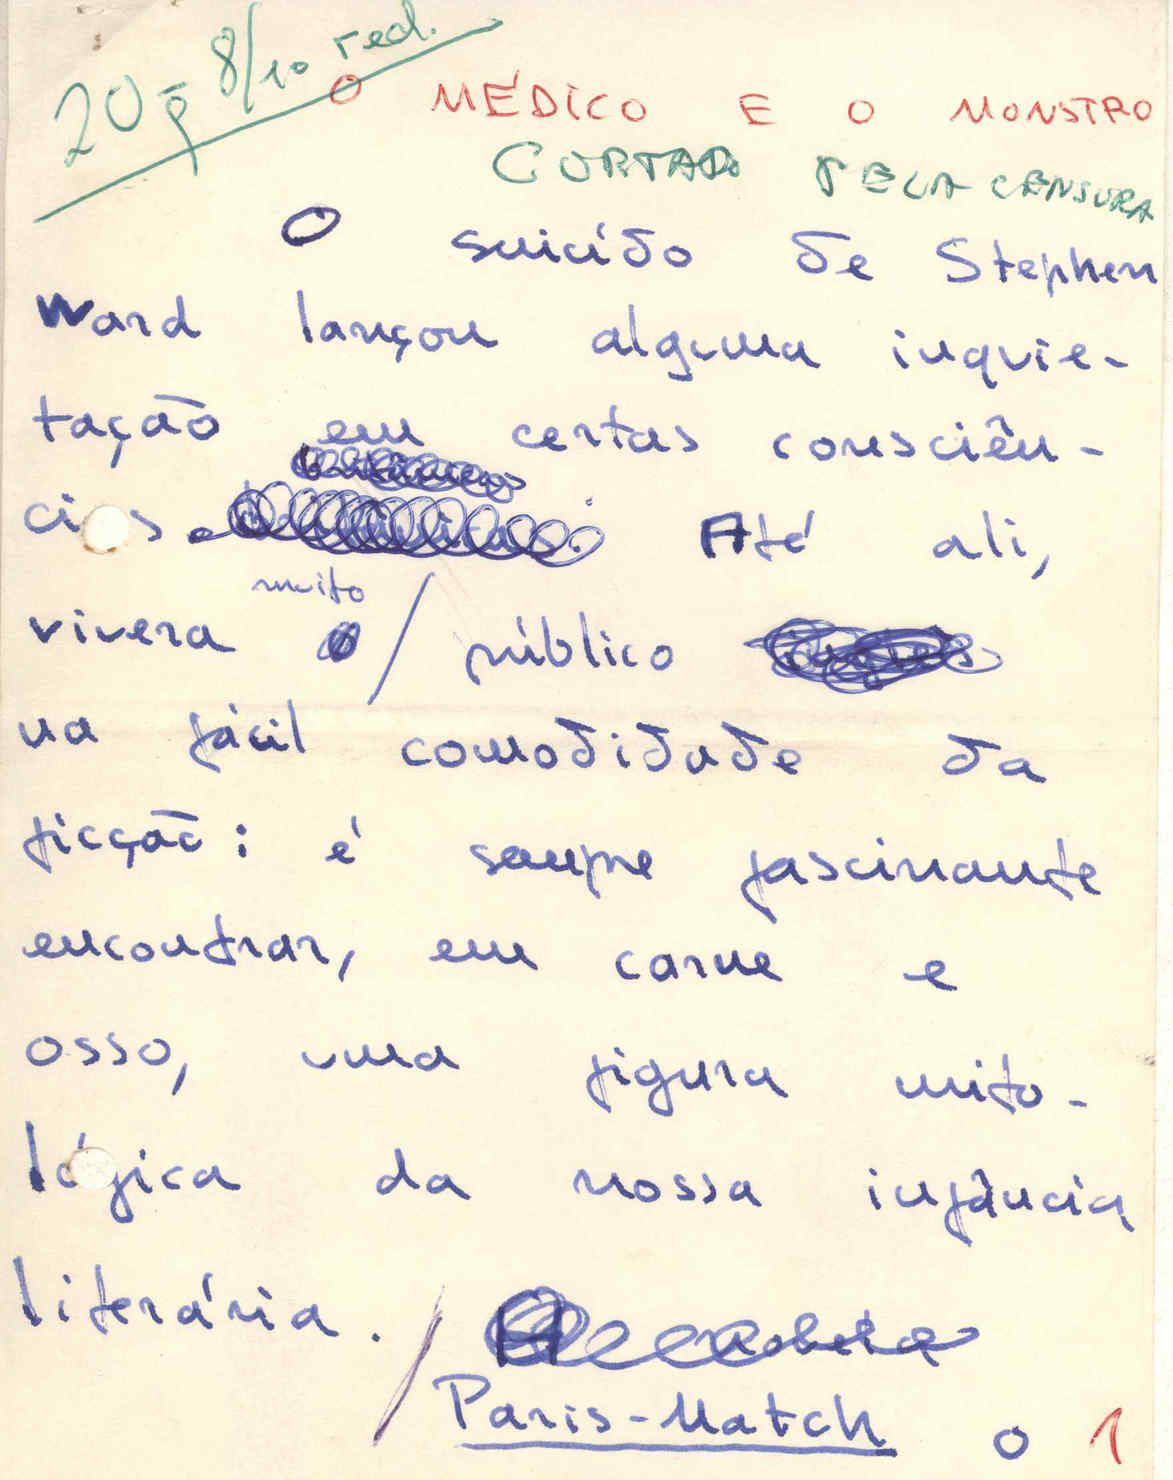 20 8/10 red.
O MÉDICO E O MONSTRO
CORTADO PELA CENSURA
O suicídio de Stephen
Ward lançou alguma inquie-
tação em certas consciên-
cias. Até ali,
muito
vivera público
na fácil comodidade da
ficção: é sempre fascinante
encontrar, em carne e
osso, uma figura mito-
lógica da nossa infância
literária.
Paris-Match o 1